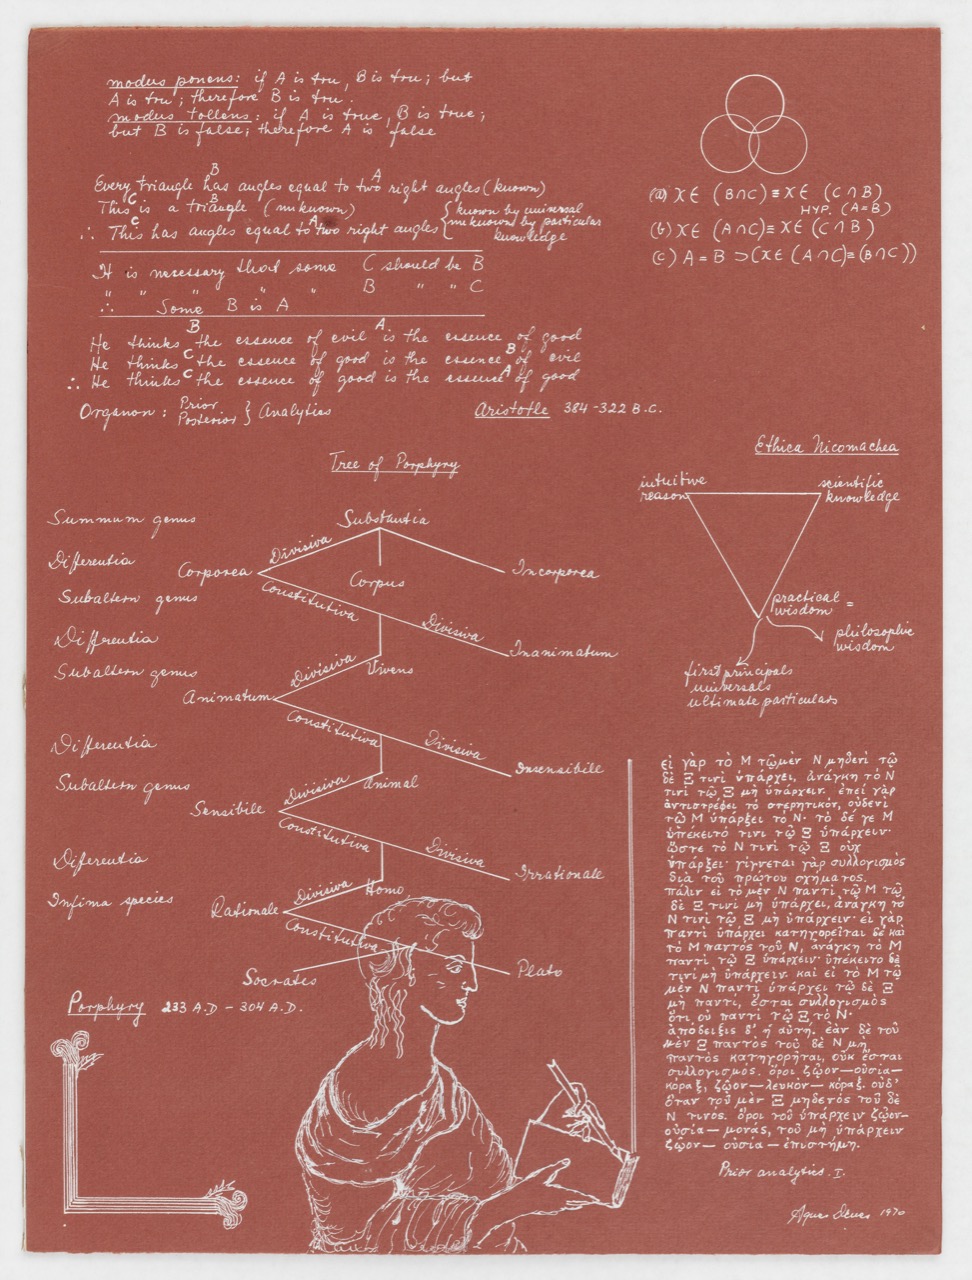 modus ponens: if A is tru, B is tru; but
A is tru; therefore B is tru.
modus tollens: if A is true, B is true;
but B is false; therefore A is false
B A
Every triangle has angles equal to two right angles (known)
C B
This is a triangle (unknown)
C A
∴ This has angles equal to two right angles { known by universal
unknown by particular
knowledge
It is necessary that some C should be B
" " " " " B " " C
∴ Some B is A
B A
He thinks the essence of evil is the essence of good
C B
He thinks the essence of good is the essence of evil
C A
∴ He thinks the essence of good is the essence of good
Organon: Prior
Posterior } Analytics
Aristotle 384-322 B.C.
(a) X ∈ (B∩C) ≡ X ∈ (C∩B)
HYP. (A=B)
(b) X ∈ (A∩C) ≡ X ∈ (C∩B)
(c) A=B ⊃ (X ∈ (A∩C) ≡ (B∩C))
Ethica Nicomachea
intuitive
reason
scientific
knowledge
practical
wisdom =
philosophic
wisdom
first principals
universals
ultimate particulars
Tree of Porphyry
Summum genus
Substantia
Differentia
Divisiva
Corporea
Corpus
Incorporea
Subaltern genus
Constitutiva
Divisiva
Differentia
Inanimatum
Subaltern genus
Divisiva
Vivens
Animatum
Constitutiva
Divisiva
Differentia
Insensibile
Subaltern genus
Divisiva
Animal
Sensibile
Constitutiva
Divisiva
Diferentia
Irrationale
Infima species
Divisiva
Homo
Rationale
Constitutiva
Socrates
Plato
Porphyry 233 A.D - 304 A.D.
εἰ γὰρ τὸ Μ τῷ μὲν Ν μηδενὶ τῷ
δὲ Ξ τινὶ ὑπάρχει, ἀνάγκη τὸ Ν
τινὶ τῷ Ξ μὴ ὑπάρχειν. ἐπεὶ γὰρ
ἀντιστρέφει τὸ στερητικόν, οὐδενὶ
τῷ Μ ὑπάρξει τὸ Ν· τὸ δέ γε Μ
ὑπέκειτό τινι τῷ Ξ ὑπάρχειν·
ὥστε τὸ Ν τινὶ τῷ Ξ οὐχ
ὑπάρξει· γίγνεται γὰρ συλλογισμὸς
διὰ τοῦ πρώτου σχήματος.
πάλιν εἰ τὸ μὲν Ν παντὶ τῷ Μ τῷ
δὲ Ξ τινὶ μὴ ὑπάρχει, ἀνάγκη τὸ
Ν τινὶ τῷ Ξ μὴ ὑπάρχειν· εἰ γὰρ
παντὶ ὑπάρχει κατηγορεῖται δὲ καὶ
τὸ Μ παντὸς τοῦ Ν, ἀνάγκη τὸ Μ
παντὶ τῷ Ξ ὑπάρχειν· ὑπέκειτο δὲ
τινὶ μὴ ὑπάρχειν. καὶ εἰ τὸ Μ τῷ
μὲν Ν παντὶ ὑπάρχει τῷ δὲ Ξ
μὴ παντί, ἔσται συλλογισμὸς
ὅτι οὐ παντὶ τῷ Ξ τὸ Ν·
ἀπόδειξις δ' ἡ αὐτή. ἐὰν δὲ τοῦ
μὲν Ξ παντὸς τοῦ δὲ Ν μὴ
παντὸς κατηγορῆται, οὐκ ἔσται
συλλογισμός. ὅροι ζῷον—οὐσία—
κόραξ, ζῷον—λευκόν—κόραξ. οὐδ'
ὅταν τοῦ μὲν Ξ μηδενὸς τοῦ δὲ
Ν τινός. ὅροι τοῦ ὑπάρχειν ζῷον—
οὐσία—μονάς, τοῦ μὴ ὑπάρχειν
ζῷον—οὐσία—ἐπιστήμη.
Prior analytics. I.
Agnes Denes 1970